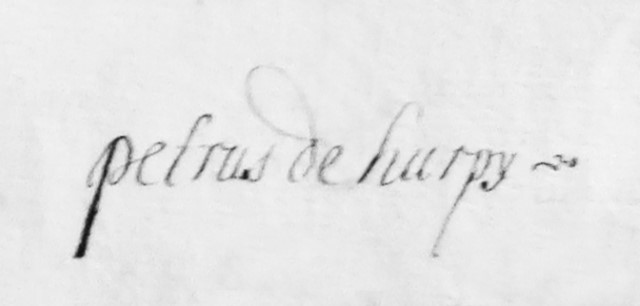 petrus de hurpy